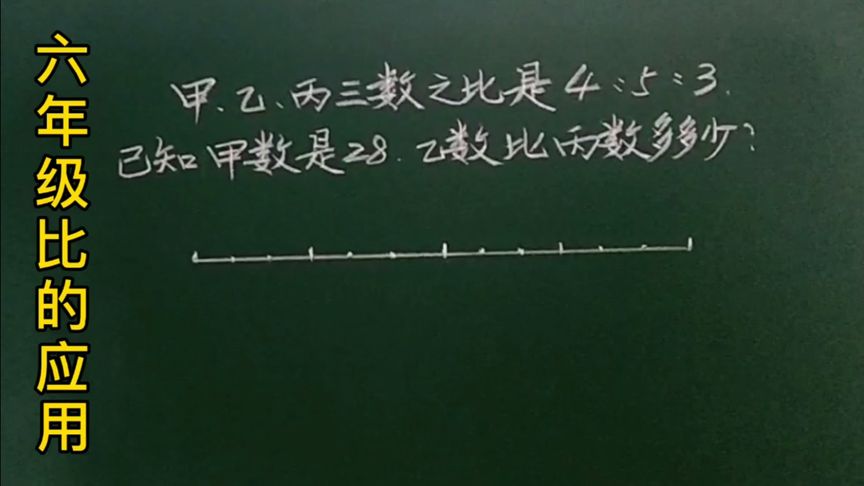 六年级比的应用
甲、乙、丙三数之比是4:5:3.
已知甲数是28.乙数比丙数多多少?